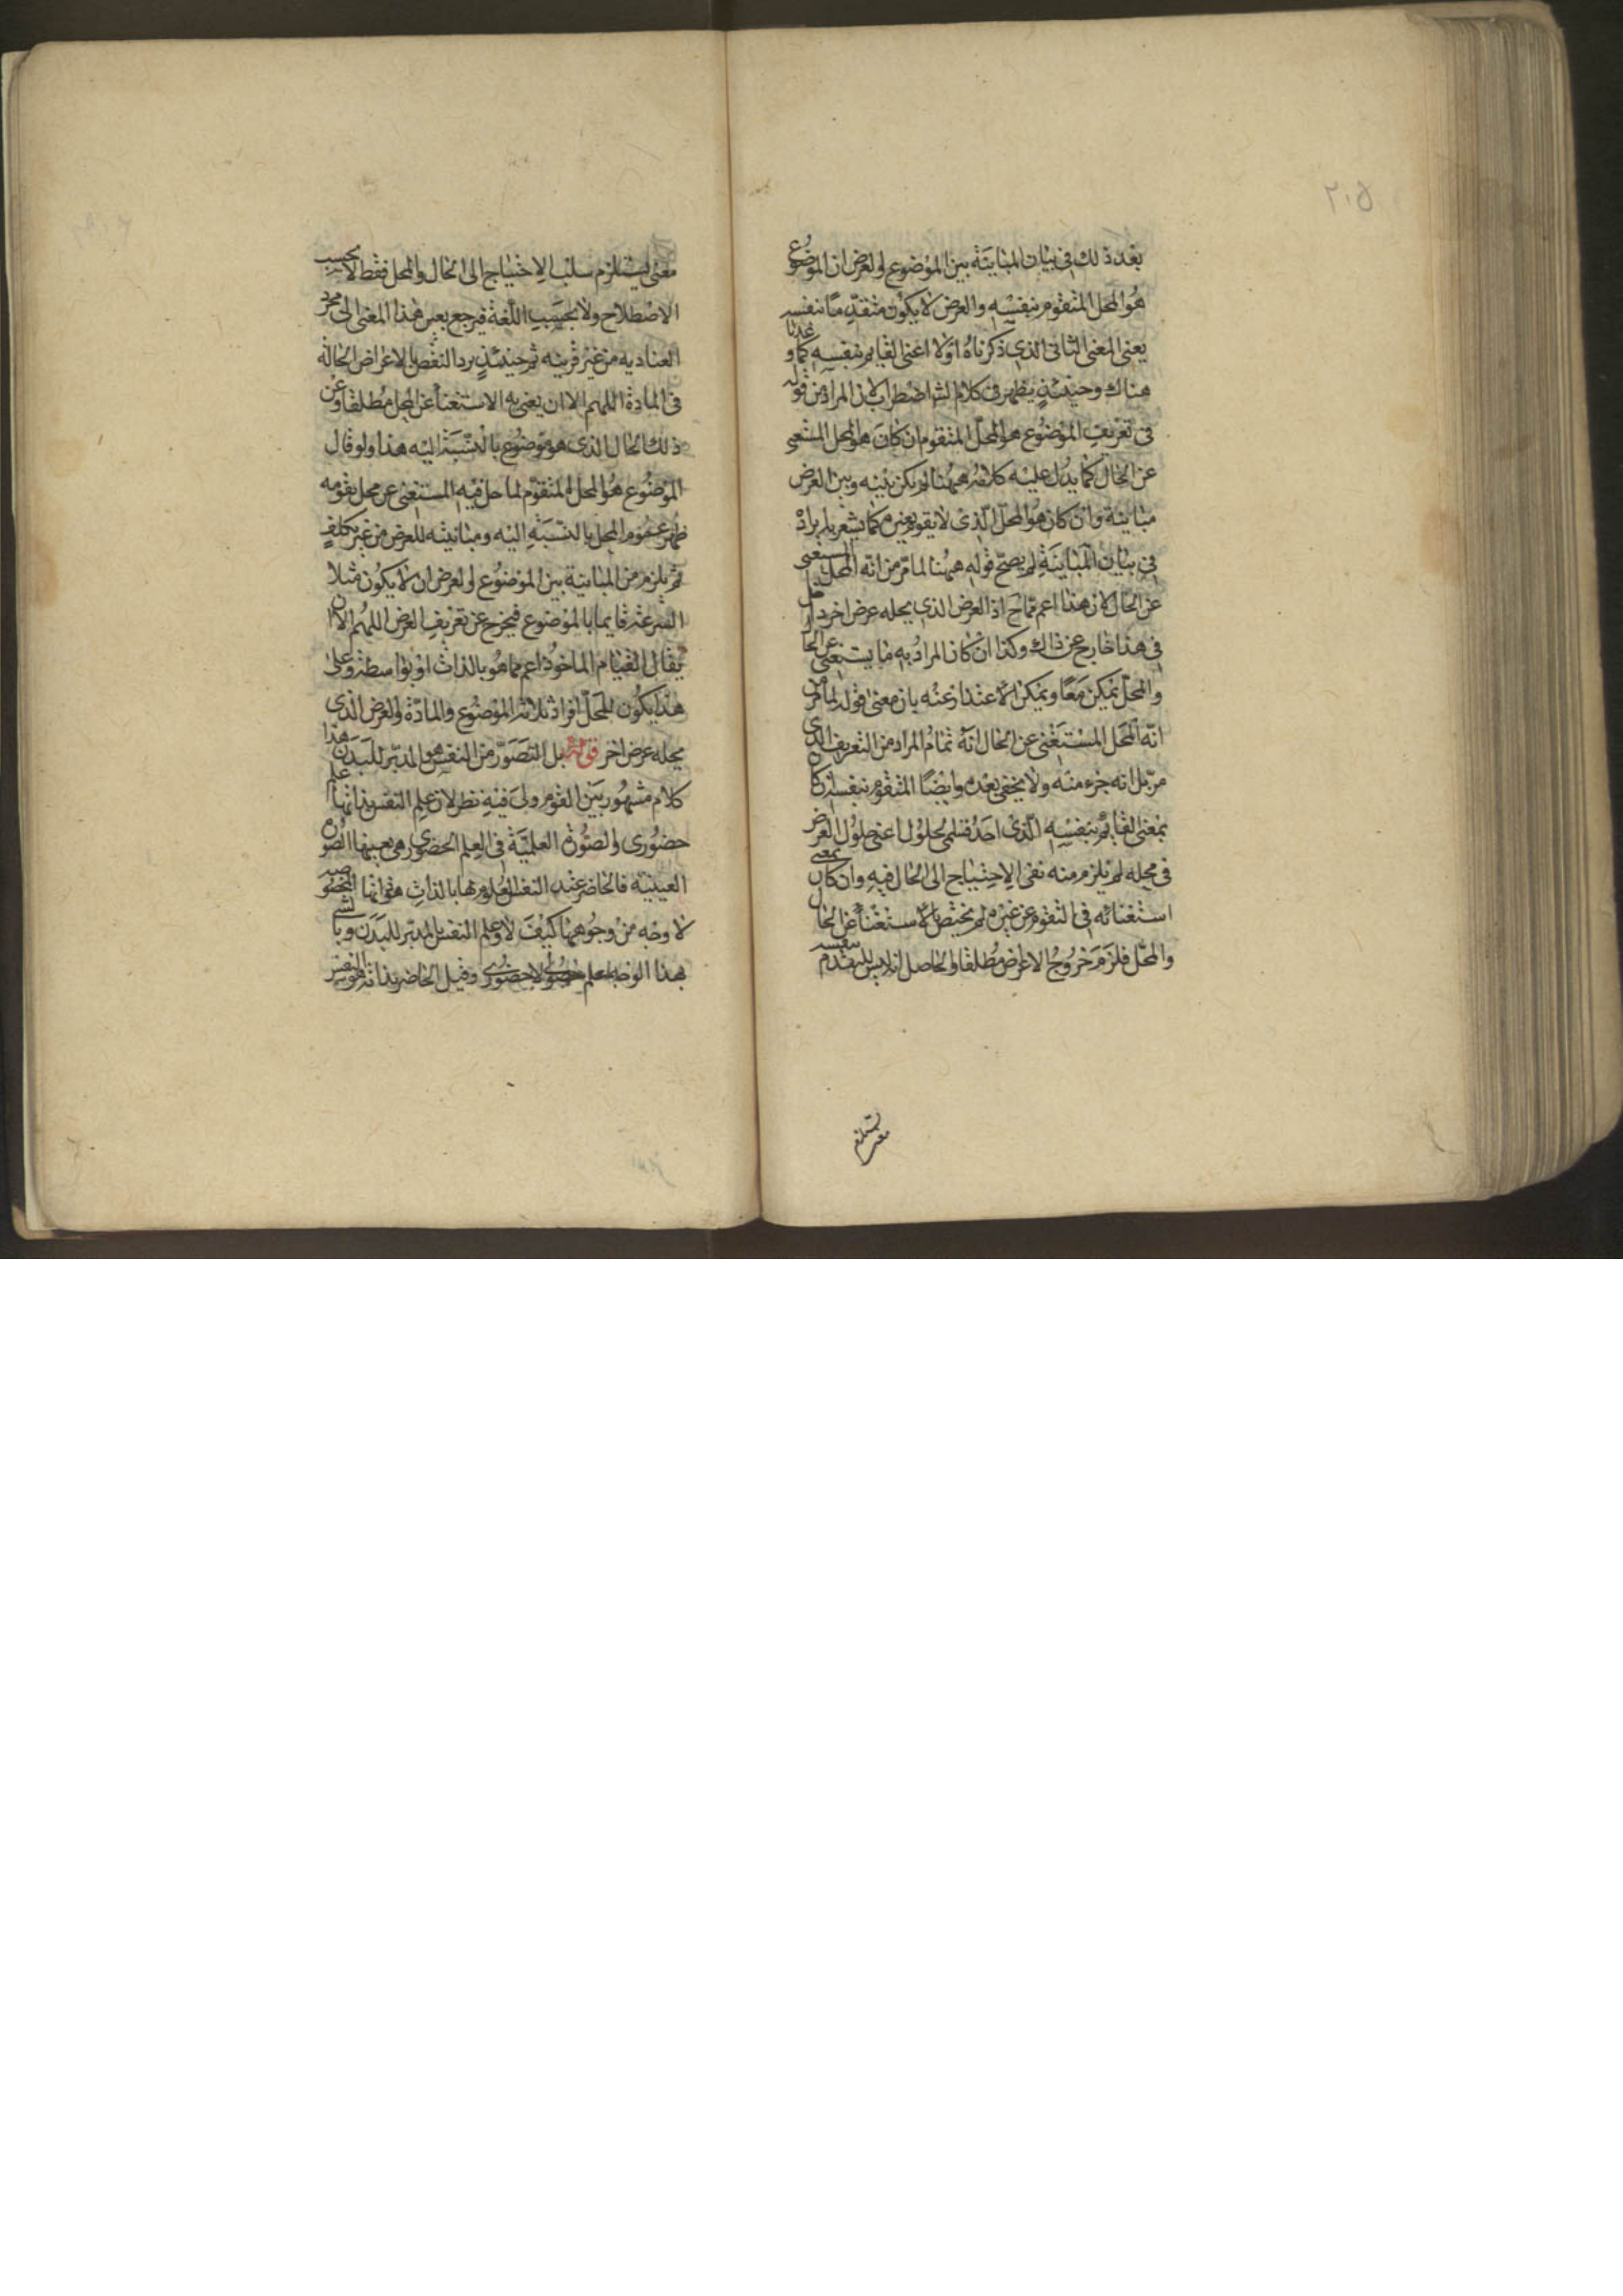 ٢٠٥
بعد ذلك في بيان المباينة بين الموضوع والعرض ان الموضوع
هو المحل المتقوم بنفسه والعرض لا يكون متقدما بنفسه
يعنى المعنى الثانى الذي ذكرناه اولا اعنى القايم بنفسه كما وعدنا
هناك وحينئذ يظهر في كلام الش اضطراب لان المراد من قوله
في تعريف الموضوع هو المحل المتقوم ان كان هو المحل المستغنى
عن الحال كما يدل عليه كلامه ههنا لم يكن بينه وبين العرض
مباينة وان كان هو المحل الذي لا يقوم بغيره كما يشعر به ايراده
في بيان المباينة لم يصح قوله ههنا لما مر من انه المحل المستغنى
عن الحال لان هذا اعم اذ العرض الذي يحله عرض اخر داخل
في هذا خارج عن ذاك وكذا ان كان المراد به ما يستغنى عن الحال
والمحل يمكن معا ويمكن الاعتذار عنه بان معنى قوله لما مر من
انه المحل المستغنى عن الحال انه تمام المراد من التعريف الذي
مر بل انه جزء منه ولا يخفى بعده وايضا المتقوم بنفسه ان كان
بمعنى القايم بنفسه الذي احد قسمى الحلول اعنى حلول العرض
في محله لم يلزم منه نفى الاحتياج الى الحال فيه وان كان بمعنى
استغنائه في التقوم عن غيره لم يختص بالاستغناء عن الحال
والمحل فلزم خروج الاعراض مطلقا والحاصل انه ليس للتقدم بنفسه
معنى يستلزم
معنى يستلزم سلب الاحتياج الى الحال والمحل فقط لا بحسب
الاصطلاح ولا بحسب اللغة فيرجع تعيين هذا المعنى الى مجرد
العنادية من غير قرينه ثم حينئذ يرد النقض بالاعراض الحالة
في المادة اللهم الا ان يعنى به الاستغناء عن المحل مطلقا وعن
ذلك الحال الذي هو موضوع بالنسبة اليه هذا ولو قال
الموضوع هو المحل المتقوم لما حل فيه المستغنى عن محل يقومه
ظهر عموم المحل بالنسبة اليه ومباينته للعرض من غير تكلف
ثم يلزم من المباينة بين الموضوع والعرض ان لا يكون مثلا
السرعة قايما بالموضوع فيخرج عن تعريف العرض اللهم الا ان
يقال القيام الماخوذ اعم مما هو بالذات او بواسطة وعلى
هذا يكون للمحل افراد ثلاثه الموضوع والمادة والعرض الذي
يحله عرض اخر قوله بل التصور من النفس هو المدبر للبدن هذا
كلام مشهور بين القوم ولى فيه نظر لان علم النفس بذاتها علم
حضورى والصورة العلمية في العلم الحضوري هى بعينها الصورة
العينية فالحاضر عند النفس المعلوم لها بالذات هو ذاتها المخصوصة
لا وجه من وجوهها كيف لا وعلم النفس بالمدبر للبدن وبالشئ
بهذا الوجه علم حصولى لا حضورى وقيل الحاضر بذاته هو النفس